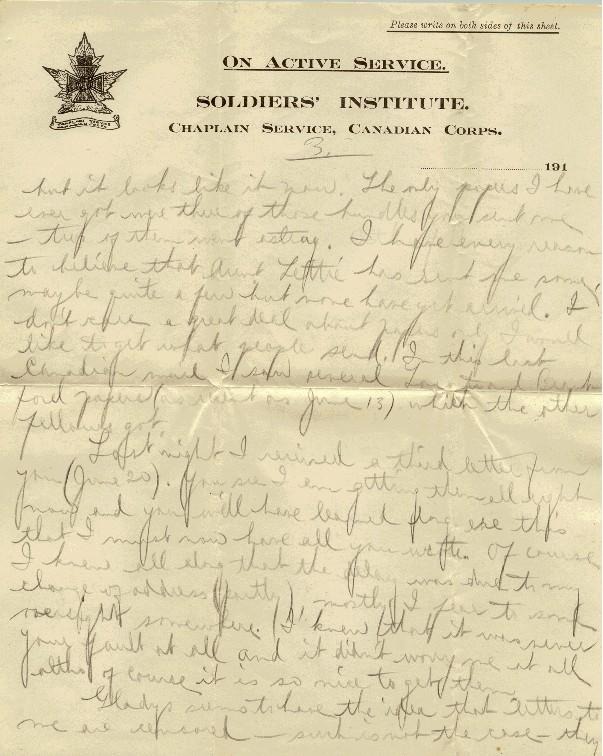 Please write on both sides of this sheet.
ON ACTIVE SERVICE.
SOLDIERS' INSTITUTE.
CHAPLAIN SERVICE, CANADIAN CORPS.
3.
191
but it looks like it now. The only papers I have
ever got were three of those bundles you sent me
— two of them went astray. I have every reason
to believe that Aunt Lettie has sent me some,
maybe quite a few but none have yet arrived. I
don't care a great deal about papers only I would
like to get what people send. In this last
Canadian mail I saw several London and Brant-
ford papers (as recent as June 13) which the other
fellows got.
Last night I received a third letter from
you (June 20). You see I am getting them all right
now and you will have learned long ere this
that I must now have all you wrote. Of course
I knew all along that the delay was due to my
change of address (partly) mostly I fear to some
oversight somewhere. I knew that it was never
your fault at all and it didn't worry me at all
altho' of course it is so nice to get them.
Gladys seems to have the idea that letters to
me are censored — such is not the case — they